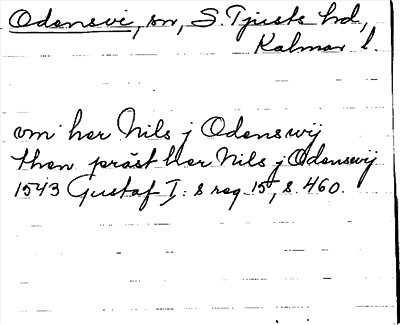 Odensvi, sn, S. Tjusts hd,
Kalmar l.
om her Nils j Odenswij
then präst her Nils j Odenswij
1543 Gustaf I:s reg 15, s. 460.